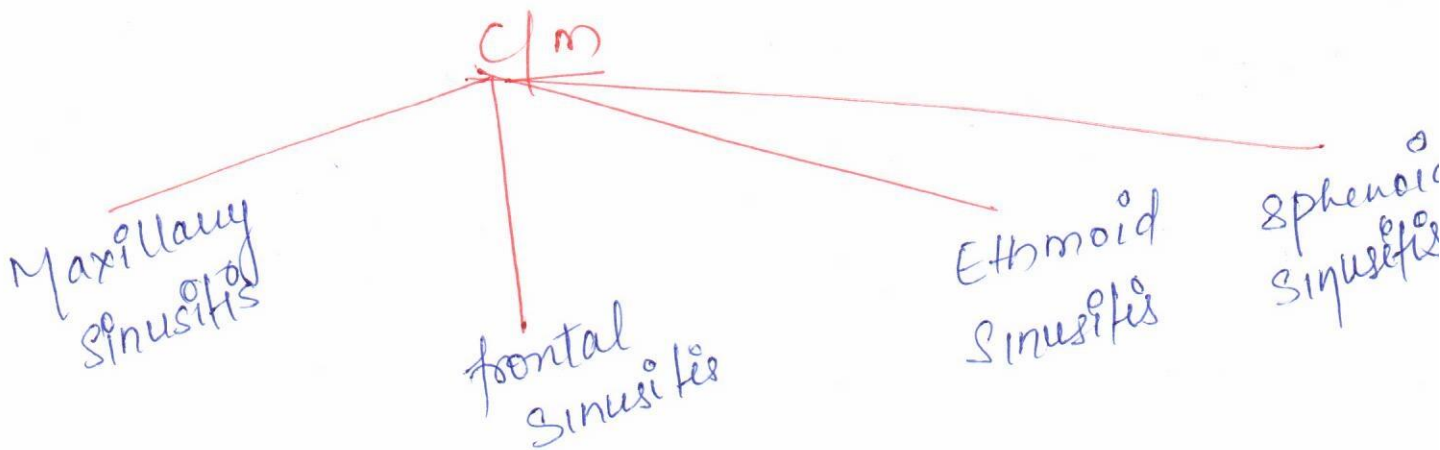 C/m
Maxillary
Sinusitis
frontal
Sinusitis
Ethmoid
Sinusitis
Sphenoid
Sinusitis